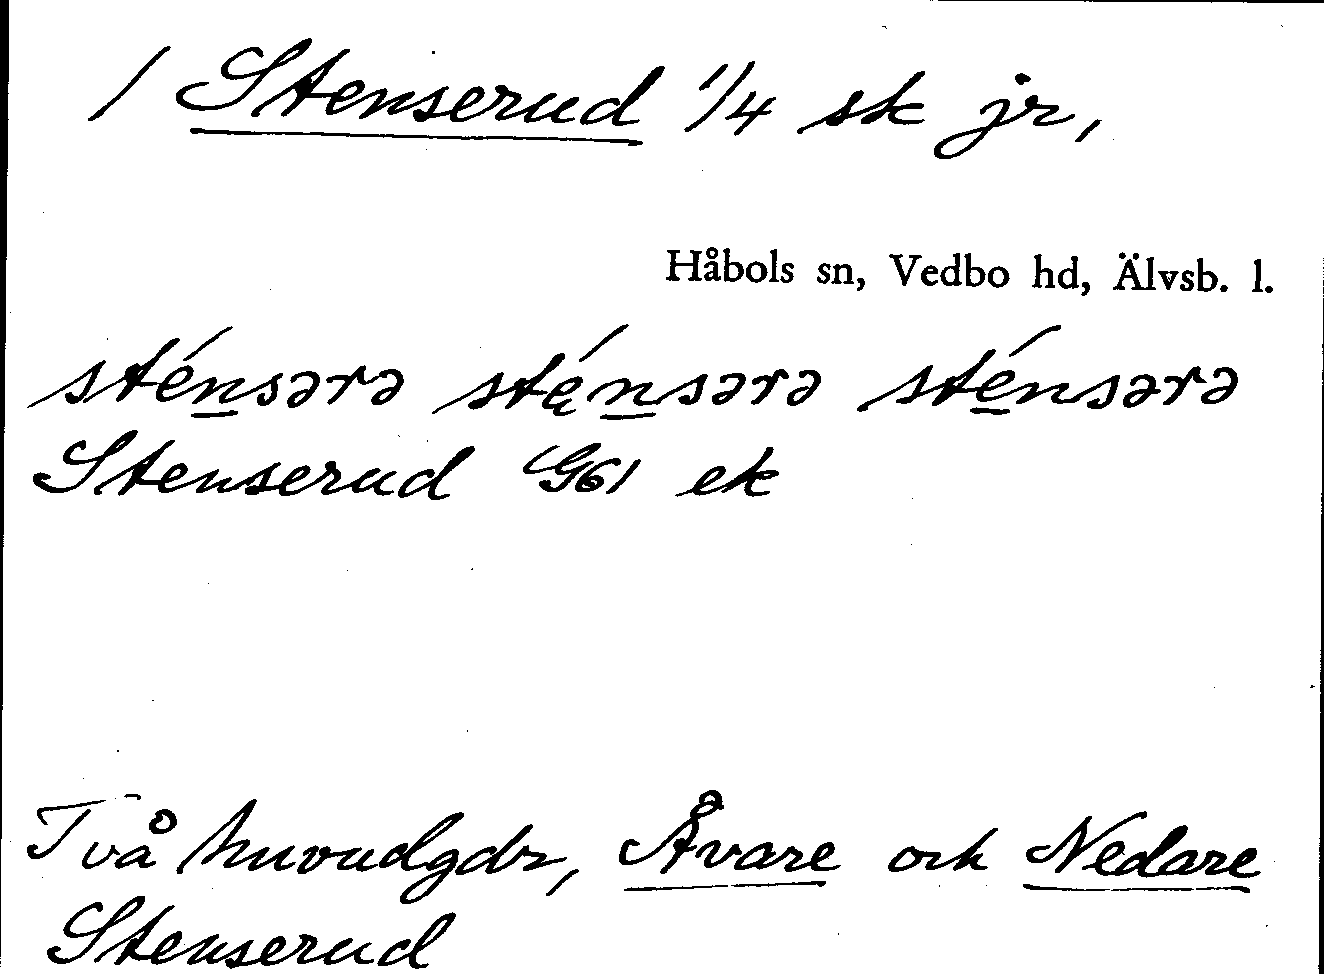 1 Stenserud 1/4 sk jr,
Håbols sn, Vedbo hd, Älvsb. l.
sténsərə stę́nsərə sténsərə
Stenserud G61 ek
Två huvudgdr, Åvare och Nedare
Stenserud